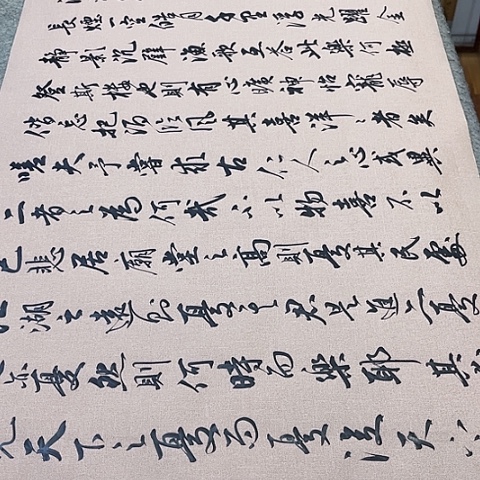 長煙一空皓月千里浮光躍金
靜影沉璧漁歌互答此樂何極
登斯樓也則有心曠神怡寵辱
偕忘把酒臨風其喜洋洋者矣
嗟夫予嘗求古仁人之心或異
二者之為何哉不以物喜不以
己悲居廟堂之高則憂其民處
湖之遠則憂其君是進亦憂
亦憂然則何時而樂耶其
先天下之憂而憂後天下